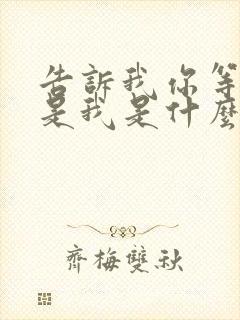 告訴我你等
是我是什麼
齊梅雙秋